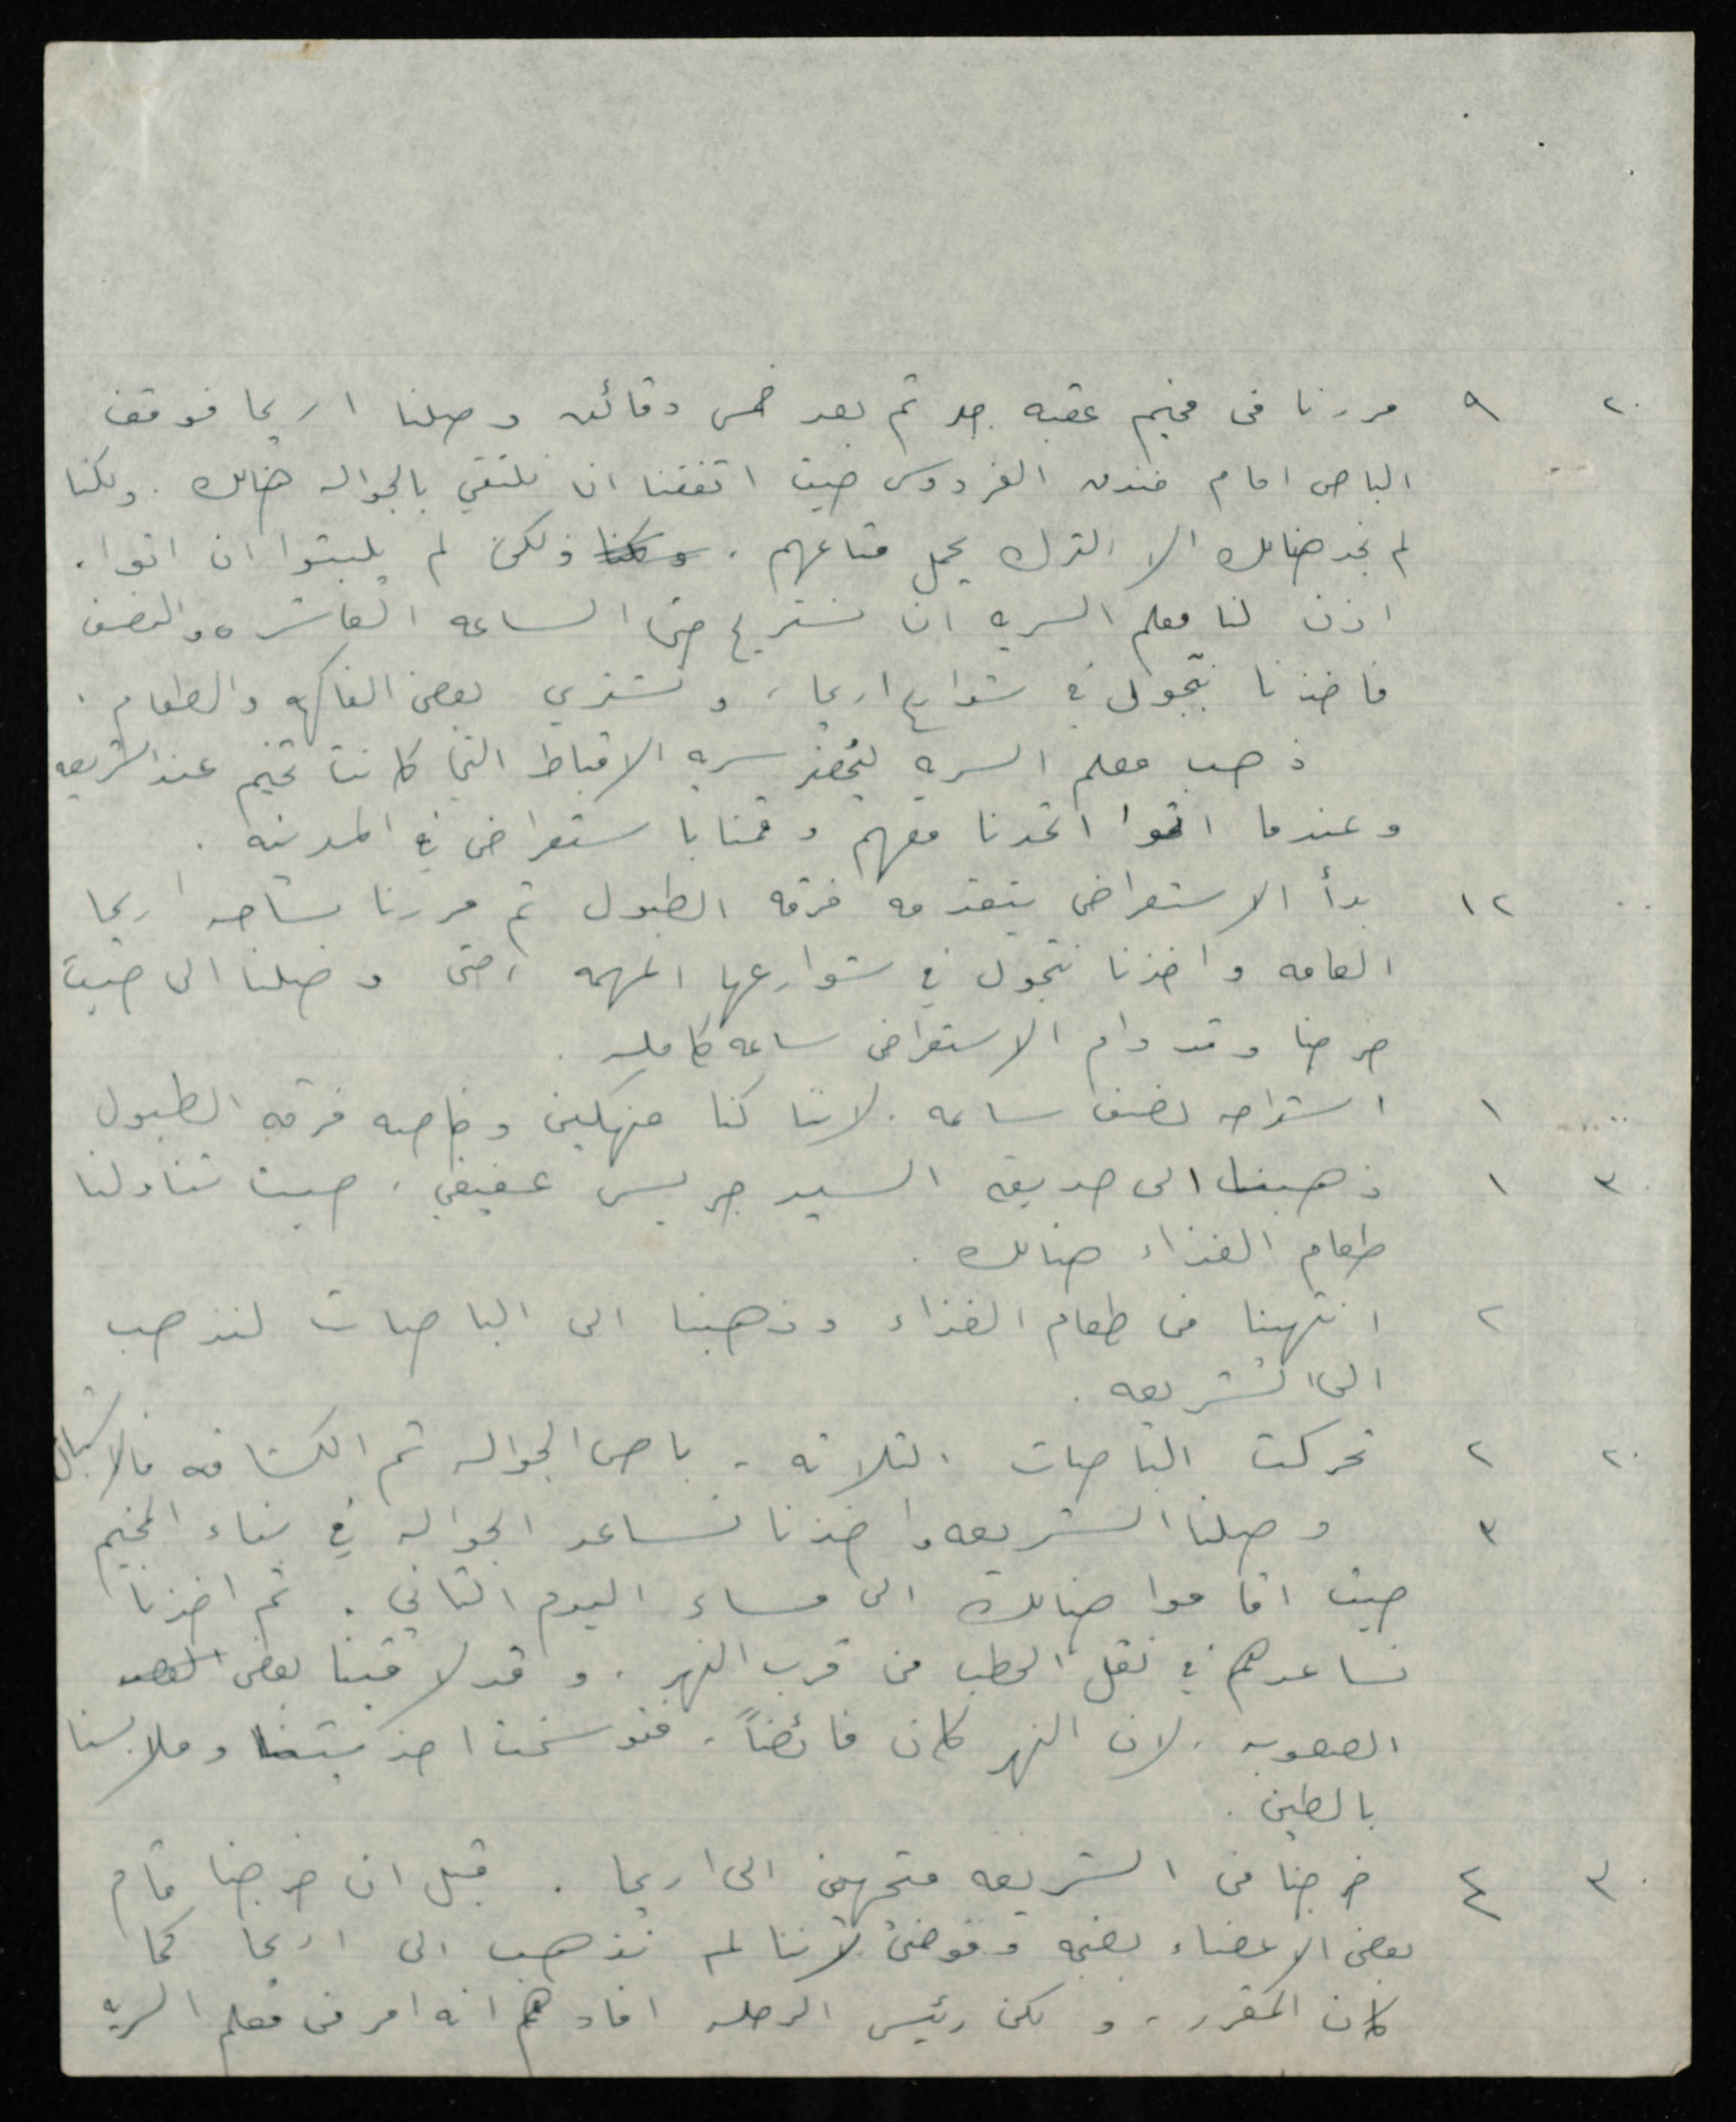 ٢٠ ٩ مررنا في مخيم عقبه جبر ثم بعد خمس دقائق وصلنا اريحا فوقف
الباص امام فندق الفردوس حيث اتفقنا ان نلتقي بالجواله هنالك . ولكنا
لم نجد هنالك الا الترك يحمل متاعهم . ولكنا ولكن لم يلبثوا ان اتوا .
اذن لنا معلم السريه ان نستريح حتى الساعه العاشره والنصف
فاخذنا نتجول في شوارع اريحا ، ونشتري بعض الفاكهه والطعام .
ذهب معلم السريه ليحضر سريه الاقباط التي كانت تخيم عند الشريعه
وعندما اتوا اتحدنا معهم وقمنا باستعراض في المدينه .
٠٠ ١٢ بدأ الاستعراض يتقدمه فرقه الطبول ثم مررنا بساحه اريحا
العامه واخذنا نتجول في شوارعها المهمه ، حتى وصلنا الى حيث
خرجنا وقد دام الاستعراض ساعه كامله .
٠٠ ١ استراحه نصف ساعه . لاننا كنا منهكين وخاصه فرقه الطبول
٣٠ ١ ذهبنا الى حديقه السيد جريس عفيفي ، حيث تناولنا
طعام الغذاء هنالك .
٢ انتهينا من طعام الغذاء وذهبنا الى الباصات لنذهب
الى الشريعه .
٢٠ ٢ تحركت الباصات الثلاثه - باص الجواله ثم الكشافه فالاشبال
٣ وصلنا الشريعه واخذنا نساعد الجواله في بناء المخيم
حيث اقاموا هنالك الى مساء اليوم الثاني . ثم اخذنا
نساعدهم في نقل الحطب من قرب النهر . وقد لاقينا بعض
الصعوبه ، لان النهر كان فائضاً ، فتوسخت احذيتنا وملابسنا
بالطين .
٣٠ ٤ خرجنا من الشريعه متجهين الى اريحا . قبل ان خرجنا قام
بعض الاعضاء بضجه وفوضى لاننا لم نذهب الى اريحا كما
كان المقرر ، ولكن رئيس الرحله افادهم انه امر من معلم السريه